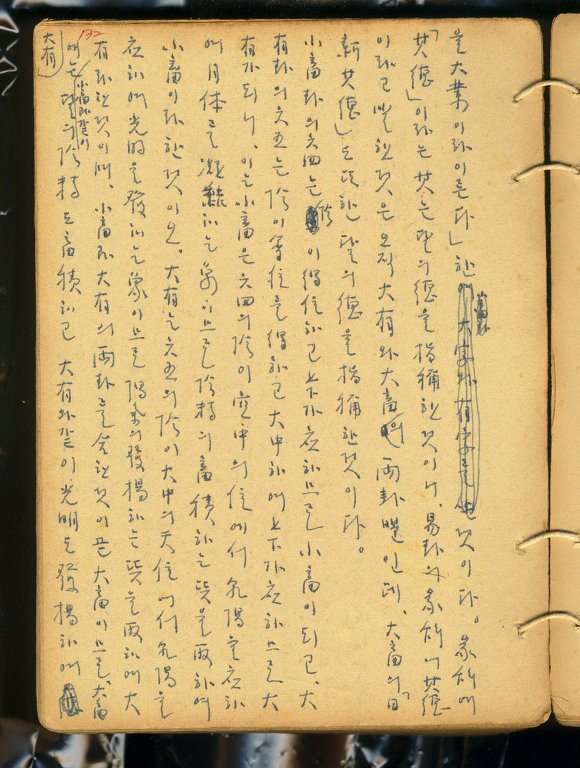 132
大有
을 大業이라 이른다」한 것이다。彖辭에
「其德」이라는 其는 괘의 德을 指稱한 것이니, 易卦의 彖辭에 其德
이라고 말한 것은 오직 大有와 大畜의 兩卦뿐인데, 大畜의「日
新其德」도 또한 괘의 德을 指稱한 것이다。
小畜卦의 六四는 陰이 得位하고 上下가 應하므로 小畜이 되고, 大
有卦의 六五는 陰이 尊位를 得하고 大中하여 上下가 應하므로 大
有가 되니, 이는 小畜은 六四의 陰이 中의 位에서 陽을 應하
여 月体를 凝結하는 象이므로 陰精의 畜積하는 뜻을 取하여
小畜이라 한 것이오, 大有는 六五의 陰이 大中의 天位에서 陽을
應하여 光明을 發하는 象이므로 陽氣의 發揚하는 뜻을 取하여 大
有라 한 것이며, 小畜과 大有의 兩卦를 合한 것이 곧 大畜이므로, 大畜
에는 小畜과 같이 괘의 陰精도 畜積하고 大有와 같이 光明도 發揚하여